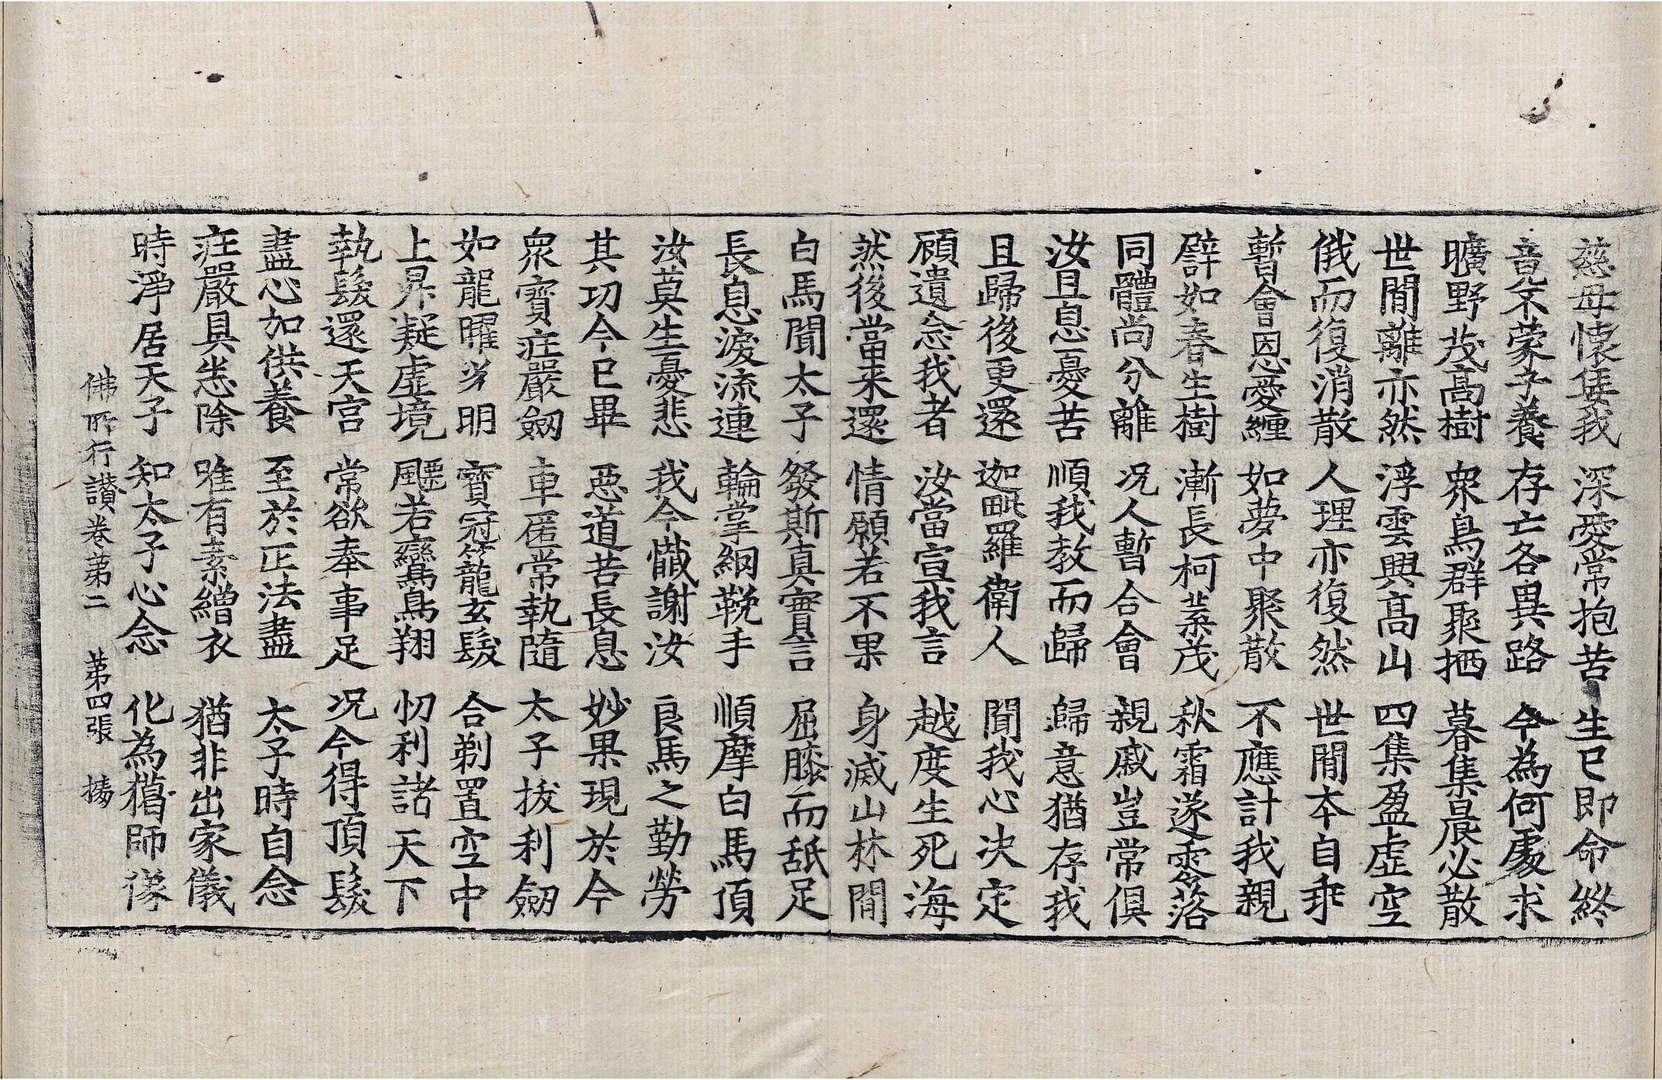 慈母懷妊我 深愛常抱苦 生已即命終
竟不蒙子養 存亡各異路 今為何處求
曠野茂高樹 衆鳥群聚栖 暮集晨必散
世間離亦然 浮雲興高山 四集盈虛空
俄而復消散 人理亦復然 世間本自乖
暫會恩愛纏 如夢中聚散 不應計我親
譬如春生樹 漸長柯葉茂 秋霜遂零落
同體尚分離 况人暫合會 親戚豈常俱
汝且息憂苦 順我教而歸 歸意猶存我
且歸後更還 迦毗羅衛人 聞我心決定
顧遺念我者 汝當宣我言 越度生死海
然後當来還 情願若不果 身滅山林間
白馬聞太子 發斯真實言 屈膝而舐足
長息淚流連 輪掌網鞔手 順摩白馬頂
汝莫生憂悲 我今懺謝汝 良馬之勤勞
其功今已畢 惡道苦長息 妙果現於今
衆寶莊嚴劒 車匿常執隨 太子拔利劒
如龍曜光明 寶冠籠玄髮 合剃置空中
上昇凝虛境 飄若鸞鳥翔 忉利諸天下
執髮還天宮 常欲奉事足 况今得頂髮
盡心加供養 至於正法盡 太子時自念
莊嚴具悉除 唯有素繒衣 猶非出家儀
時淨居天子 知太子心念 化為獵師像
佛所行讚卷第二 第四張 楊